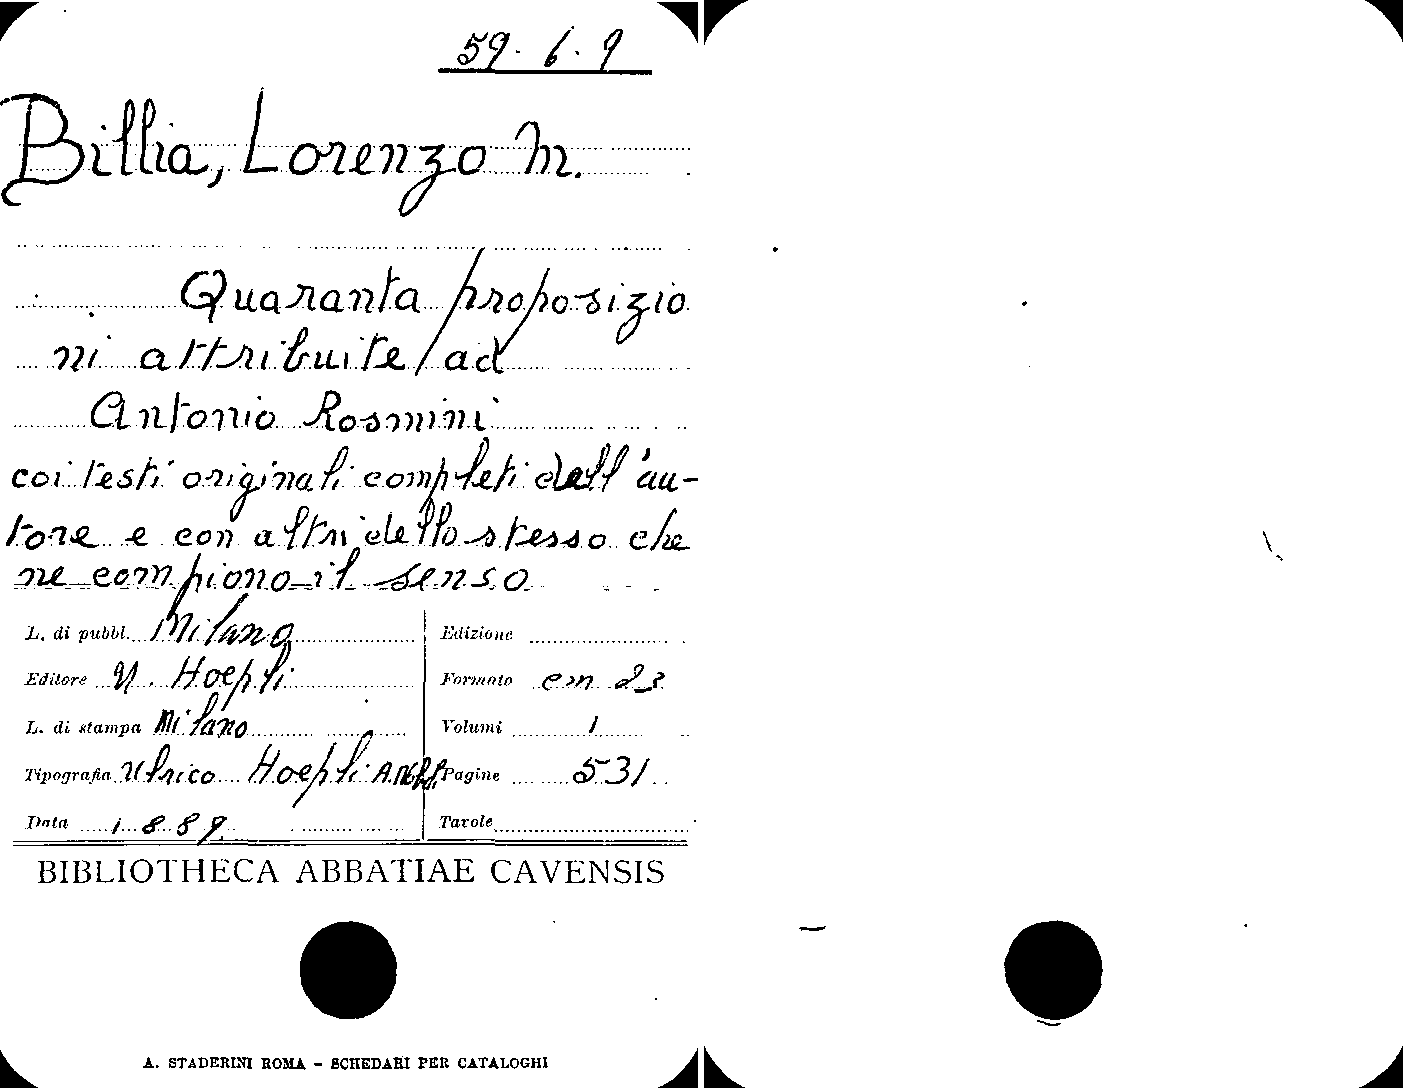 59. 6. 9
Billia, Lorenzo M.
Quaranta proposizio
ni attribuite ad
Antonio Rosmini
coi testi originali completi dell'au-
tore e con altri dello stesso che
ne compiono il senso
L. di pubbl. Milano
Edizione
Editore U. Hoepli
Formato cm 23
L. di stampa Milano
Volumi 1
Tipografia Ulrico Hoepli
Pagine 531
Data 1889
Tavole
BIBLIOTHECA ABBATIAE CAVENSIS
A. STADERINI ROMA - SCHEDARI PER CATALOGHI